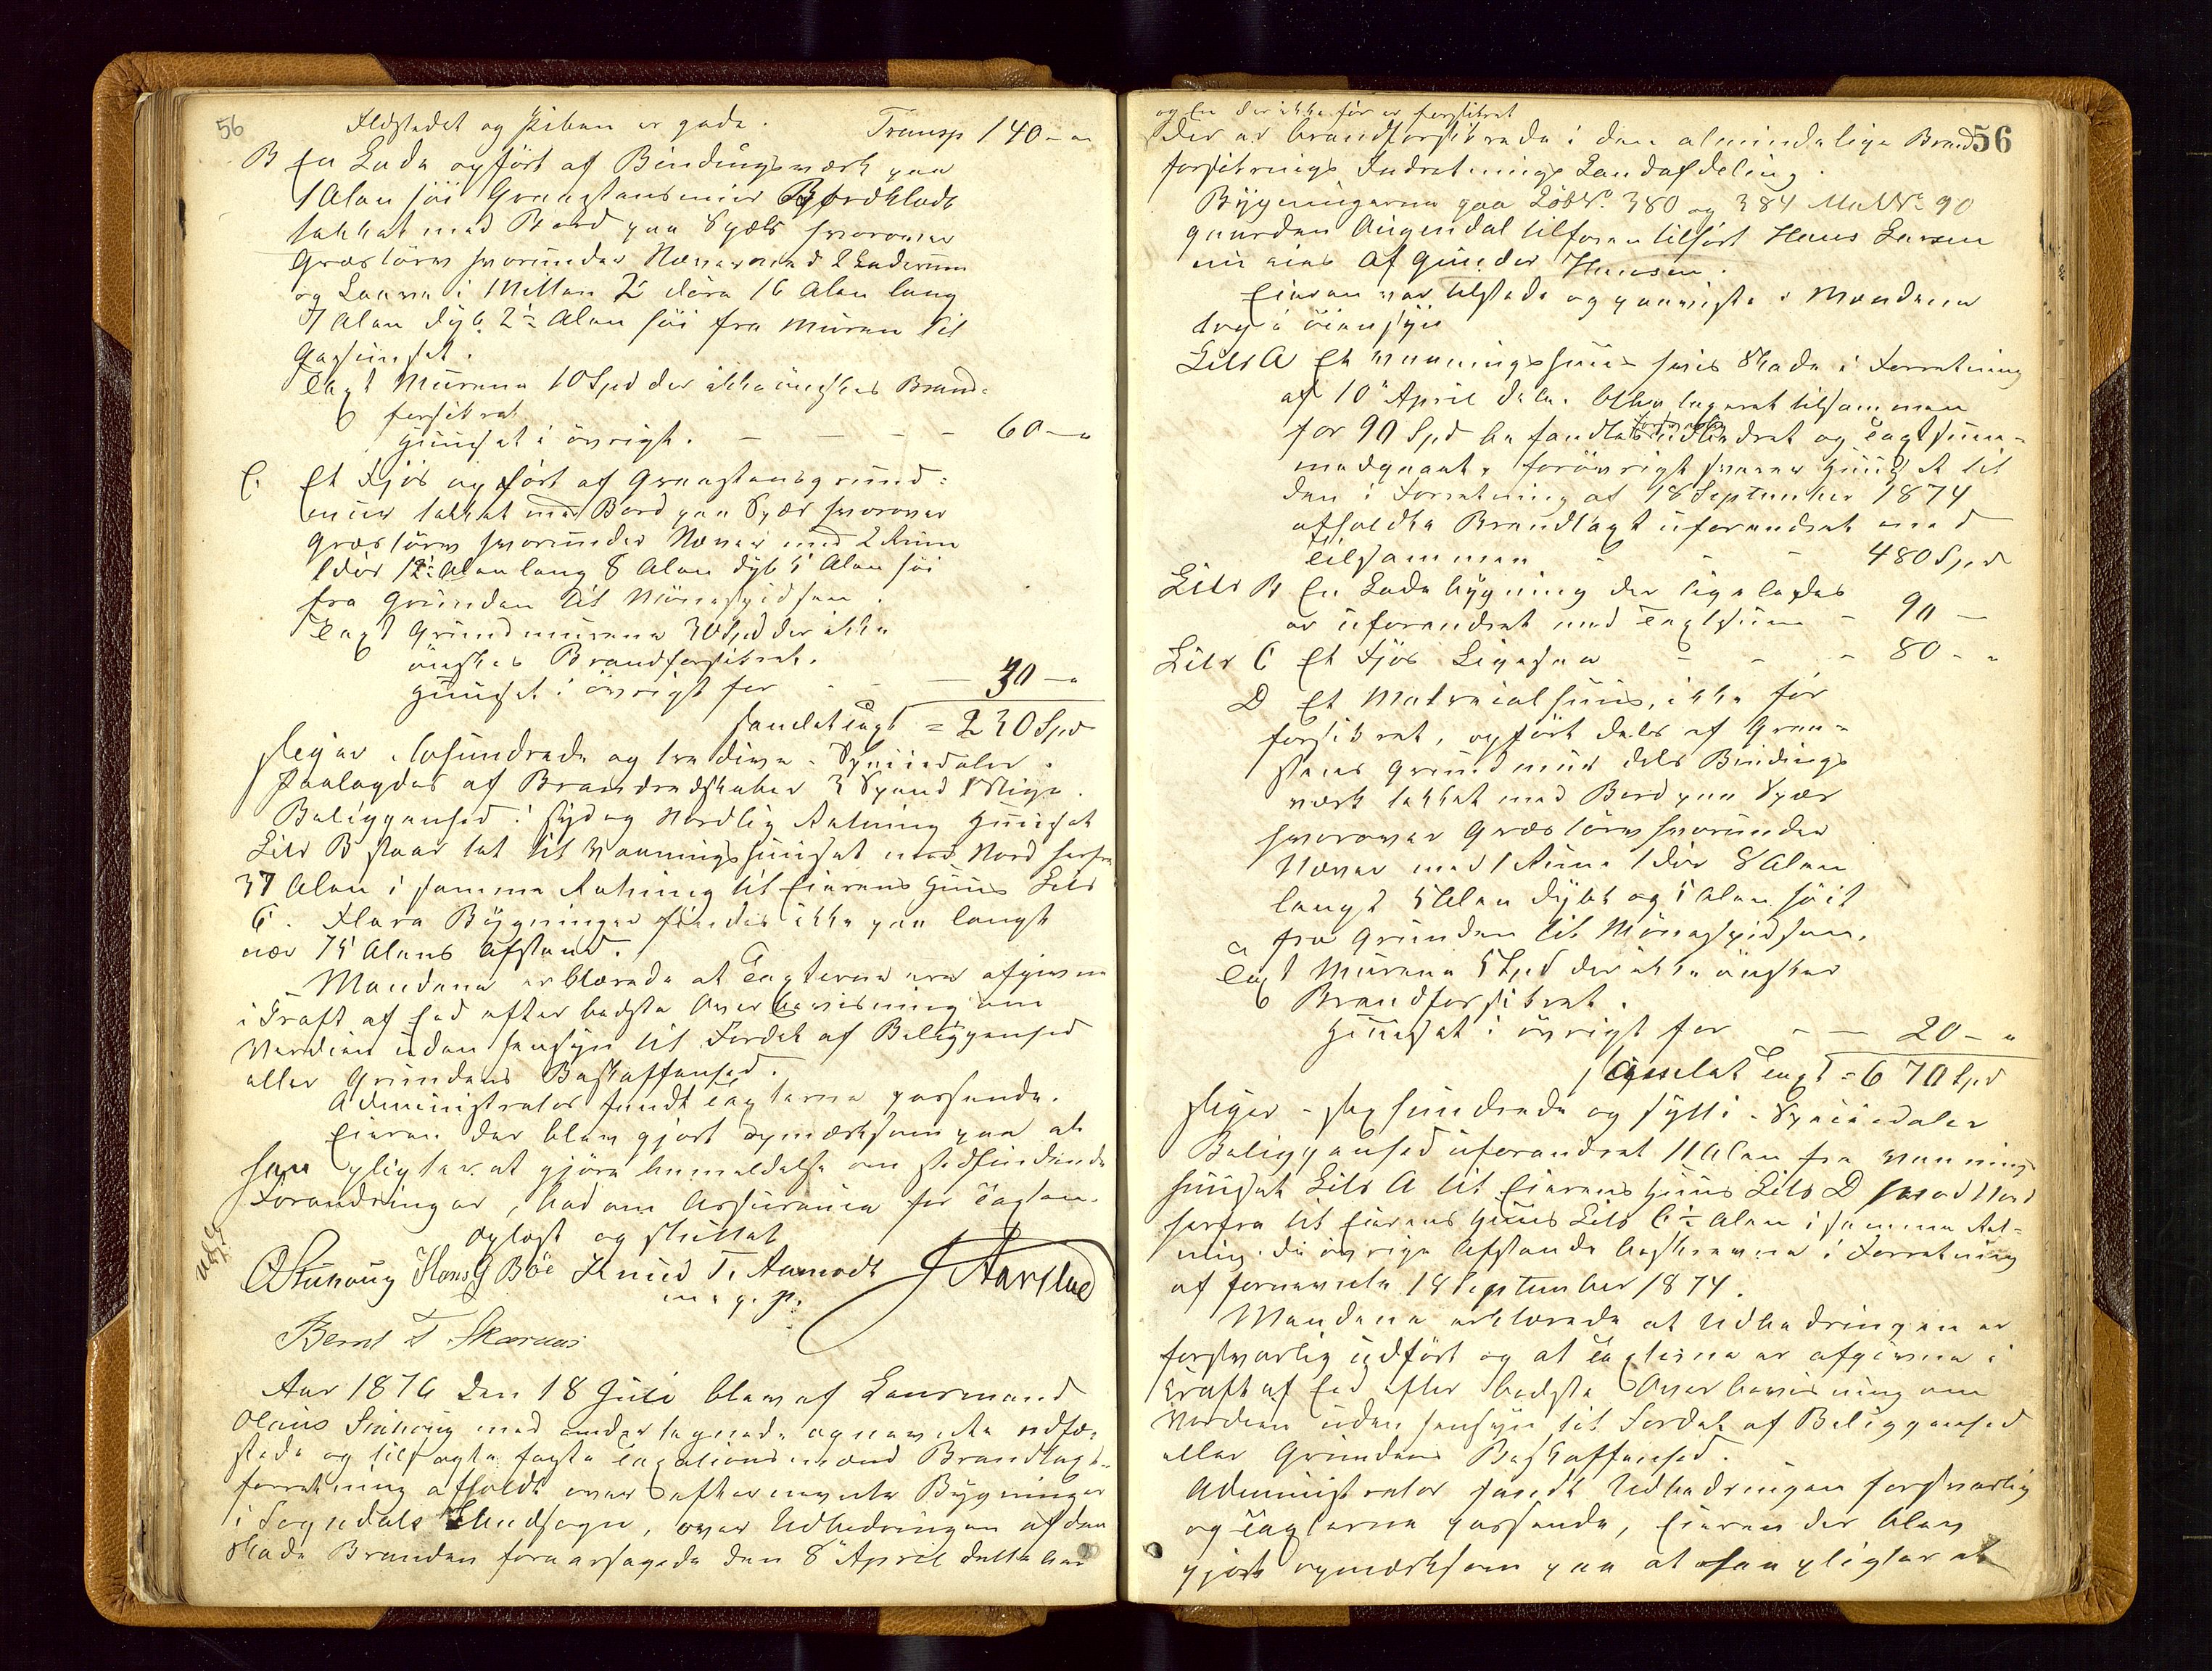 56
Ildstedet og Piben er gode. Transp 140 - "
B En Lade opført af Bindingsværk paa
1 Alen høi Graastensmuur Bordklædt
takket med Bord paa Spær hvorover
Græstørv hvorunder Næver med 2 Laderum
og Laave i Mitten 2 døre 16 Alen lang
7 Alen dyb 2½ Alen høi fra Muren til
Gaghunset.
Taxt Murene 10 Spd der ikke ønskes Brand-
forsikret
Huuset i øvrigt. - - - - 60 - "
C. Et Fjøs opført af Graastensgrund-
muur takket med Bord paa Spær hvorover
Græstørv hvorunder Næver med 2 Rum
1 dør 12 Alen lang 8 Alen dyb 5 Alen høi
fra Grunden til Mønespidsen.
Taxt Grundmurene 30 Spd der ikke
ønskes Brandforsikret.
Huuset i øvrigt for - - - 30 - "
samlet Taxt = 230 Spd
siger tohundrede og tredive Speciedaler.
Paalagdes af Brandredskaber 3 Spand 1 Stige.
Beliggenhed i syd og Nordlig Retning Huuset
Litr B staar tæt til Vaaningshuuset mod Nord herfra
37 Alen i samme Retning til Eierens Huus Litr
C. Flere Bygninger findes ikke paa langt
nær 75 Alens Afstand.
Mændene erklærede at Taxterne ere afgivne
i Kraft af Eed efter bedste Overbeviisning om
Værdien uden Hensyn til Fordel af Beliggenhed
eller Grundens Beskaffenhed.
Administrator fandt Taxterne passende.
Eieren der blev gjort opmærksom paa at
han pligter at gjøre Anmeldelse om stedfindende
Forandringer, bad om Assurance for Taxten.
Oplæst og sluttet
Udf
O Stuhaug Hans G Böe Knud T. Aamodt J Aarstad
m. p. P.
Bernt T Skaraas
Aar 1876 den 18 Juli blev af Lensmand
Olaus Stuhaug med undertegnede opnævnte edfæ-
stede og tilsagte faste Taxationsmænd Brandtaxt-
forretning afholdt over efternævnte Bygninger
i Sogndals Landsogn, over Udbedringen af den
Skade Branden foraarsagede den 8 April dette Aar
56
og En der ikke før er forsikret
der er brandforsikrede i den almindelige Brand-
forsikrings Indretnings Landafdeling.
Bygningerne paa Løb No. 380 og 384 Mat No. 90
gaarden Augendal tilforn tilhørt Hans Larsen
nu eies af Gunder Hansen.
Eieren var tilstede og paaviste. Mændene
tog i Øiensyn
Litr A Et Vaaningshuus hvis Skade i Forretning
af 10 April d. A. blev taxeret tilsammen
for 90 Spd befandtes udbedret og Taxtsum-
men gaaet, forøvrigt svarer Huuset til
den i Forretning af 18 September 1874
afholdte Brandtaxt uforandret med
tilsammen - - - 480 Spd
Litr B En Ladebygning der ligeledes
er uforandret med Taxtsum - 90 -
Litr C Et Fjøs Ligesaa - - - 80 - "
D Et Matrialhuus, ikke før
forsikret, opført dels af Graa-
steens Grundmuur dels Bindings
værk takket med Bord paa Spær
hvorover Græstørv hvorunder
Næver med 1 Rum 1 dør 8 Alen
langt 5 Alen dybt og 5 Alen høit
fra Grunden til Mønespidsen.
Taxt Murene 5 Spd der ikke ønskes
Brandforsikret.
Huuset i øvrigt for - - 20 - "
samlet Taxt = 670 Spd
siger - sexhundrede og sytti - Speciedaler
Beliggenhed uforandret 11 Alen fra Vaanings
huuset Litr A til Eierens Huus Litr D mod Nord
herfra til Eierens Huus Litr C ½ Alen i samme Ret-
ning. De øvrige Afstande beskrevne i Forretning
af fornævnte 18 September 1874.
Mændene erklærede at Udbedringen er
forsvarlig udført og at Taxterne er afgivne i
Kraft af Eed efter bedste Overbeviisning om
Værdien uden Hensyn til Fordel af Beliggenhed
eller Grundens Beskaffenhed.
Administrator fandt Udbedringen forsvarlig
og Taxterne passende, Eieren der blev
gjort opmærksom paa at han pligter at